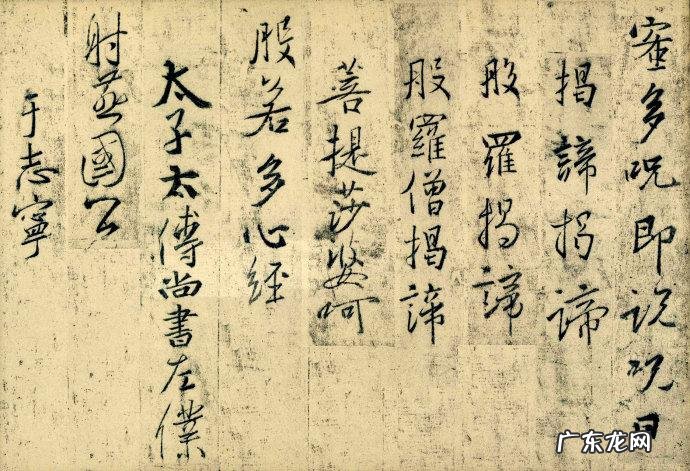 蜜多呪即説呪曰
揭諦揭諦
般羅揭諦
般羅僧揭諦
菩提莎婆呵
般若多心經
太子太傅尚書左僕
射燕國公
于志寧
广东龙网